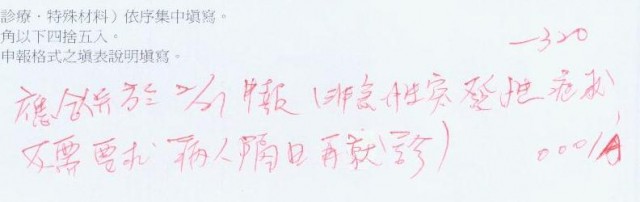 診療、特殊材料）依序集中填寫。
角以下四捨五入。
申報格式之填表說明填寫。
—320
應合併於 2/21 申報（非急性突發性症狀
不需要求病人隔日再就診）
0001